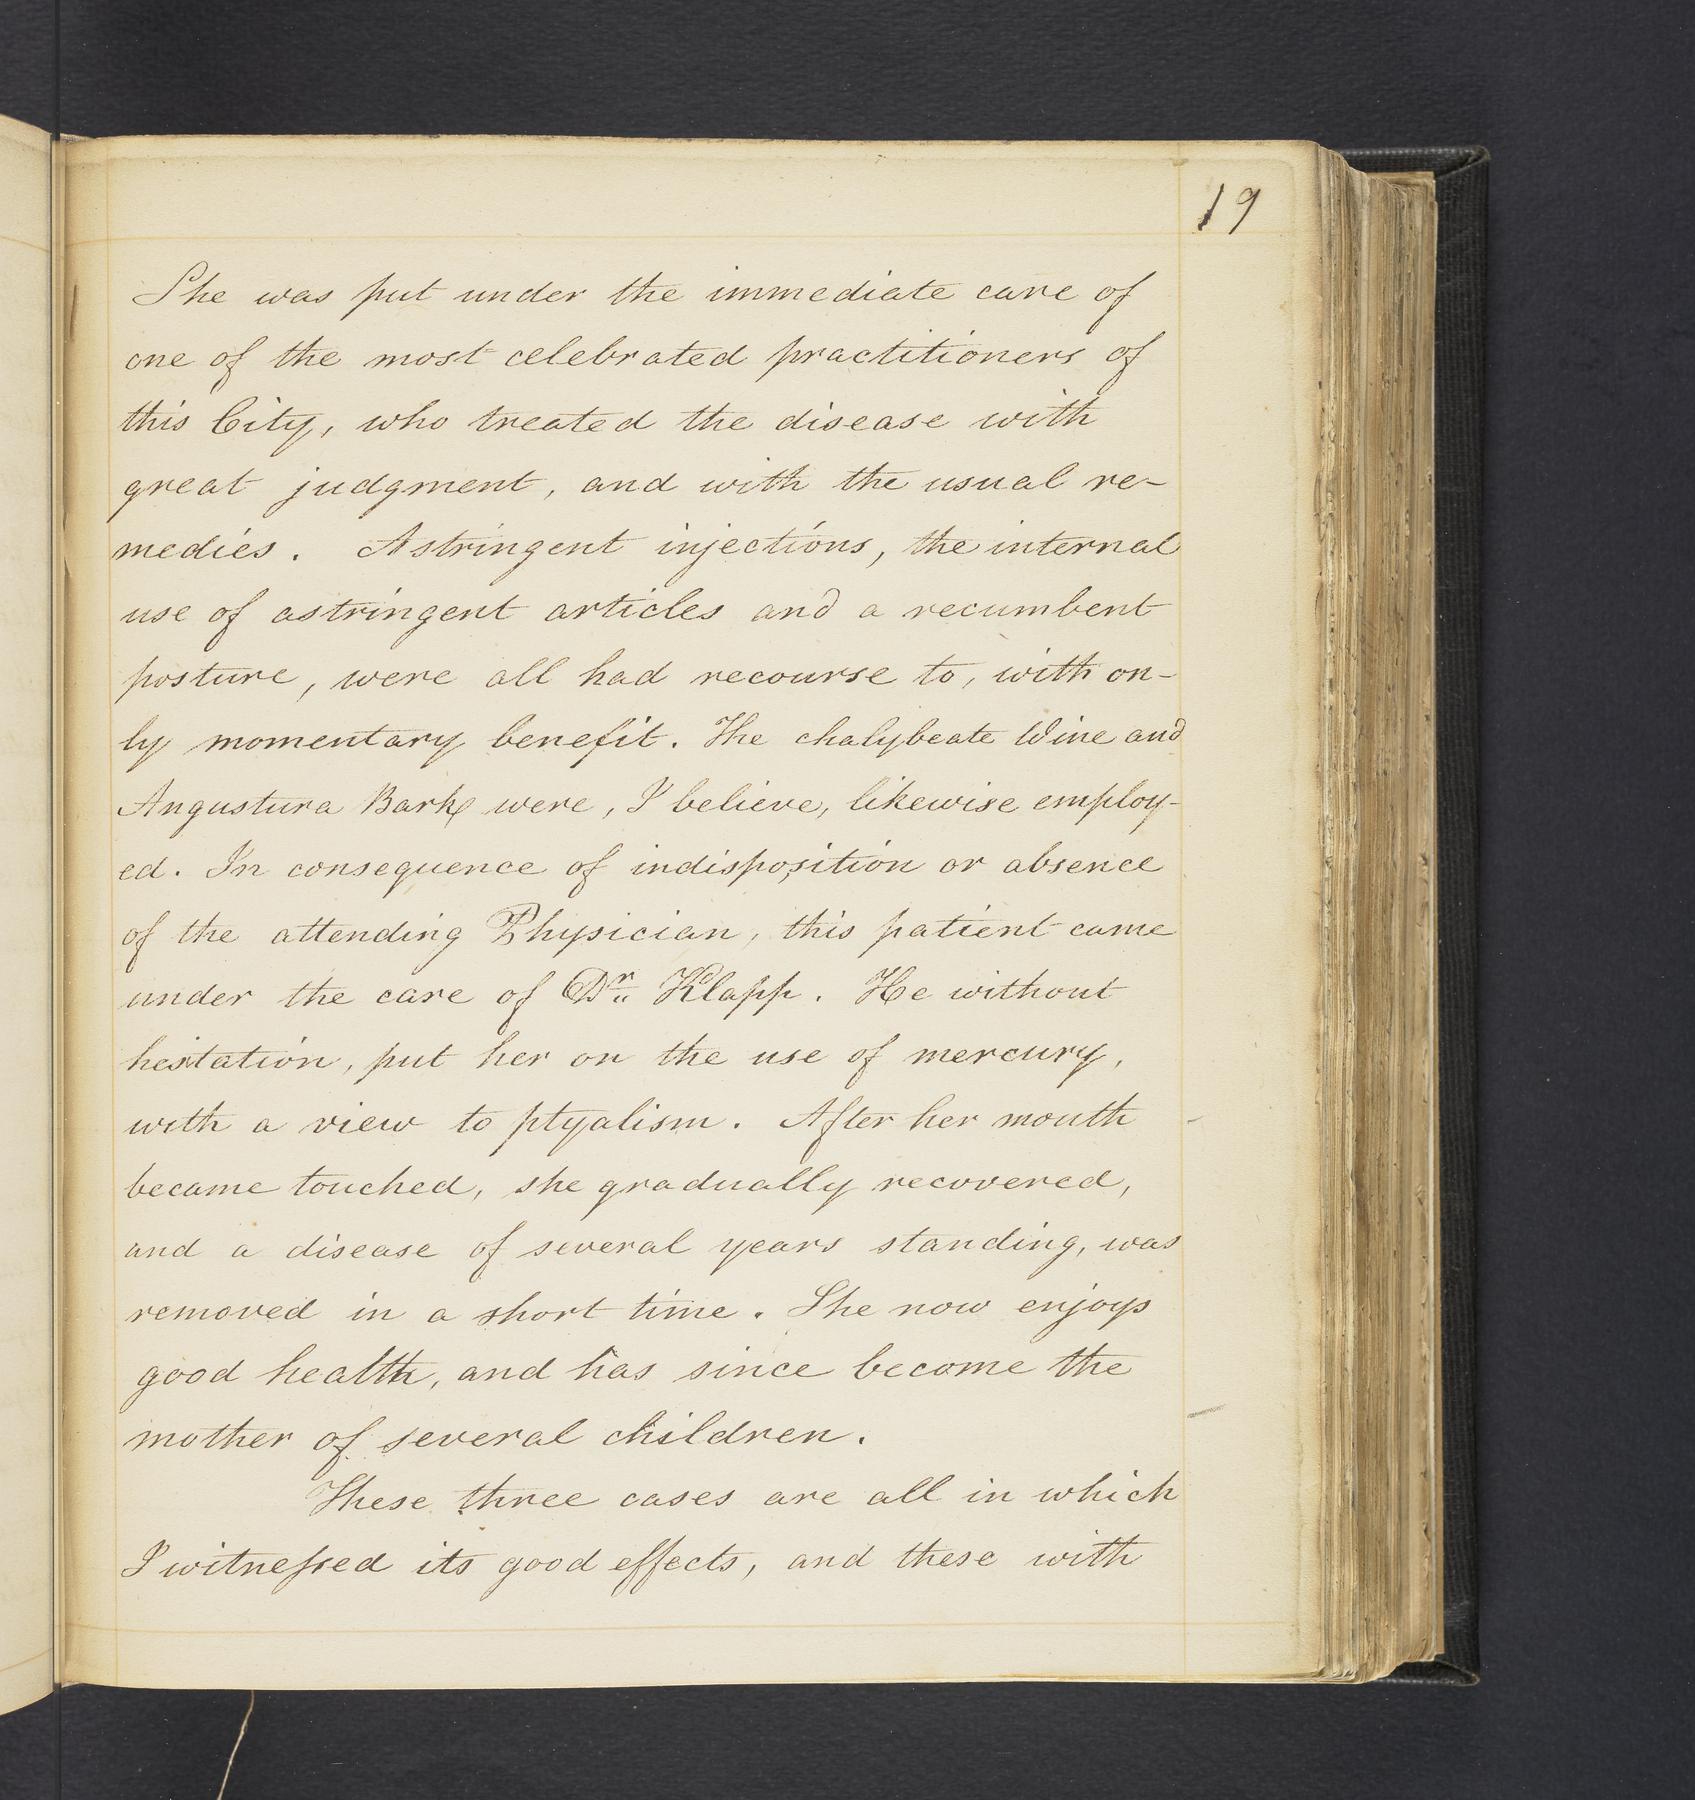 19
She was put under the immediate care of
one of the most celebrated practitioners of
this City, who treated the disease with
great judgment, and with the usual re-
medies. Astringent injections, the internal
use of astringent articles and a recumbent
posture, were all had recourse to, with on-
ly momentary benefit. The chalybeate Wine and
Angustura Bark were, I believe, likewise employ-
ed. In consequence of indisposition or absence
of the attending Physician, this patient came
under the care of Dr. Klapp. He without
hesitation, put her on the use of mercury,
with a view to ptyalism. After her mouth
became touched, she gradually recovered,
and a disease of several years standing, was
removed in a short time. She now enjoys
good health, and has since become the
mother of several children.
These three cases are all in which
I witnessed its good effects, and these with